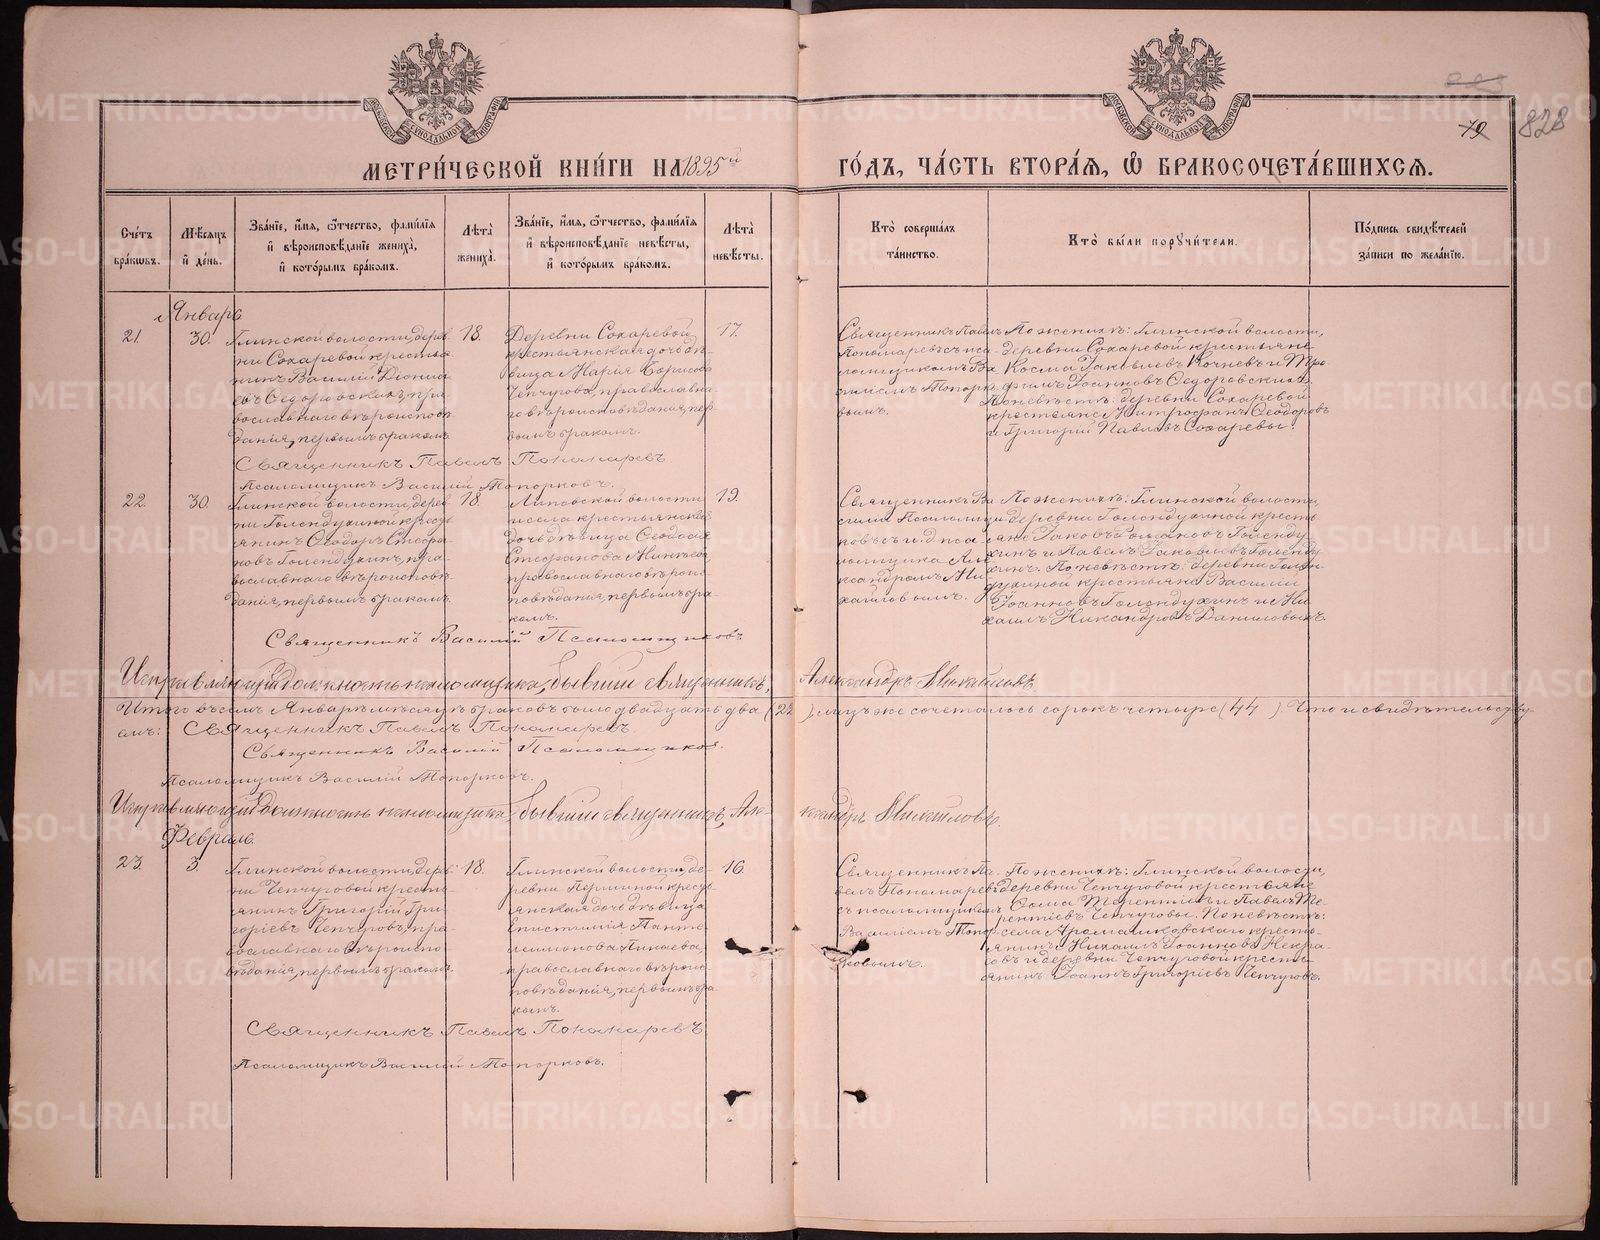 828
МЕТРИЧЕСКОЙ КНИГИ НА 1895й ГОДЪ, ЧАСТЬ ВТОРАЯ, Ѡ БРАКОСОЧЕТАВШИХСЯ.
Счетъ браковъ.
Мѣсяцъ и день.
Званіе, имя, отчество, фамилія и вѣроисповѣданіе жениха, и которымъ бракомъ.
Лѣта жениха.
Званіе, имя, отчество, фамилія и вѣроисповѣданіе невѣсты, и которымъ бракомъ.
Лѣта невѣсты.
Кто совершалъ таинство.
Кто были поручители.
Подпись свидѣтелей записи по желанію.
Январь
21.
30.
Глинской волости, дерев-
ни Сохаревой крестья-
нинъ Василій Діониси-
евъ Ѳедоровскихъ, пра-
вославнаго вѣроиспов-
данія, первымъ бракомъ
18.
Деревни Сохаревой
крестьянская дочь дѣ-
вица Марія Борисова
Чепчугова, православна-
го вѣроисповѣданія, пер-
вымъ бракомъ.
17.
Священникъ Павелъ
Пономаревъ съ пса-
ломщикомъ Ва-
силіемъ Топорк-
вымъ.
По женихѣ: Глинской волости,
деревни Сохаревой крестьяне
Косма Іаковлевъ Кочневъ и Тро-
фимъ Іоанновъ Ѳедоровскихъ.
По невѣстѣ: деревни Сохаревой
крестьяне Митрофанъ Ѳеодоровъ
и Григорій Павловъ Сохаревы.
Священникъ Павелъ Пономаревъ
Псаломщикъ Василій Топорковъ.
22.
30.
Глинской волости, дерев-
ни Голендухиной кресть-
янинъ Ѳеодоръ Стефа-
новъ Голендухинъ, пра-
вославнаго вѣроисповѣ-
данія, первымъ бракомъ
18.
Липовской волости
и села крестьянская
дочь дѣвица Ѳеодосія
Стефанова Минѣева
православнаго вѣроис-
повѣданія, первымъ бра-
комъ.
19.
Священникъ Ва-
силій Псаломщи-
ковъ съ и. д. пса-
ломщика Але-
ксандромъ Ми-
хайловымъ.
По женихѣ: Глинской волости
деревни Голендухиной кресть-
яне Іаковъ Романовъ Голенду-
хинъ и Павелъ Іаковлевъ Голенду-
хинъ. По невѣстѣ: деревни Голен-
духиной крестьяне Василій
Іоанновъ Голендухинъ и Ми-
хаилъ Никандровъ Даниловыхъ.
Священникъ Василій Псаломщиковъ
Исправляющій должность псаломщика, бывшій священникъ, Александръ Михайловъ
Итого въ семъ Январѣ мѣсяцѣ браковъ было двадцать два (22) лицъ же сочеталось сорокъ четыре (44). Что и свидѣтельству-
емъ: Священникъ Павелъ Пономаревъ
Священникъ Василій Псаломщиковъ.
Псаломщикъ Василій Топорковъ.
Исправляющій должность псаломщика, бывшій священникъ, Александръ Михайловъ.
Февраль.
23.
3.
Глинской волости, дерев-
ни Чепчуговой кресть-
янинъ Григорій Гри-
горіевъ Чепчуговъ, пра-
вославнаго вѣроиспо-
вѣданія, первымъ бракомъ.
18.
Глинской волости, де-
ревни Першиной кресть-
янская дочь дѣвица
Епистимія Панте-
леимонова Пинаева,
православнаго вѣроис-
повѣданія, первымъ бра-
комъ.
16.
Священникъ Па-
велъ Пономаревъ
съ псаломщикомъ
Василіемъ Топор-
ковымъ.
По женихѣ: Глинской волости,
деревни Чепчуговой крестьяне
Ѳома Терентіевъ и Павелъ Те-
рентіевъ Чепчуговы. По невѣстѣ:
села Арамашковскаго кресть-
янинъ Михаилъ Іоанновъ Некра-
совъ и деревни Чепчуговой кресть-
янинъ Іоаннъ Григоріевъ Чепчуговъ.
Священникъ Павелъ Пономаревъ
Псаломщикъ Василій Топорковъ.
METRIKI.GASO-URAL.RU